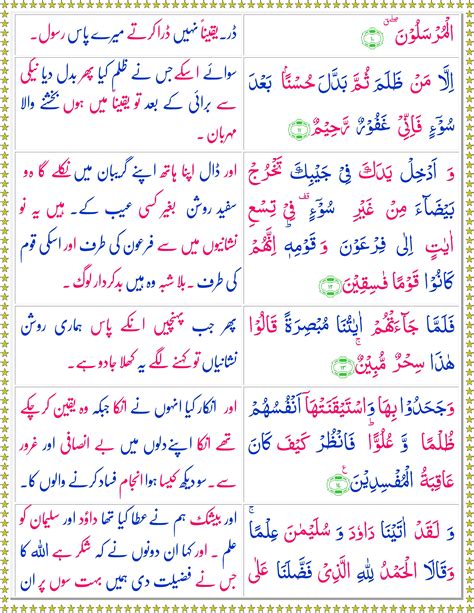 الْمُرْسَلُوْنَ ۖ ۗ ۱۰
ڈر۔یقیناً نہیں ڈرا کرتے میرے پاس رسول۔
اِلَّا مَنْ ظَلَمَ ثُمَّ بَدَّلَ حُسْنًۢا بَعْدَ
سُوْٓءٍ فَاِنِّىْ غَفُوْرٌ رَّحِيْمٌ ۱۱
سوائے اسکےجس نے ظلم کیا پھر بدل دیا نیکی
سے برائی کے بعد تو یقیناً میں ہوں بخشنے والا
مہربان۔
وَ اَدْخِلْ يَدَكَ فِىْ جَيْبِكَ تَخْرُجْ
بَيْضَآءَ مِنْ غَيْرِ سُوْٓءٍ ۚ فِىْ تِسْعِ
اٰيٰتٍ اِلٰى فِرْعَوْنَ وَ قَوْمِهٖ ؕ اِنَّهُمْ
كَانُوْا قَوْمًا فٰسِقِيْنَ ۱۲
اور ڈال اپنا ہاتھ اپنے گریبان میں نکلے گا وہ
سفید روشن بغیر کسی عیب کے۔ ہیں یہ نو
نشانیوں میں سے فرعون کی طرف اور اسکی قوم
کی طرف ۔بلا شبہ وہ ہیں بدکردار لوگ۔
فَلَمَّا جَآءَتْهُمْ اٰيٰتُنَا مُبْصِرَةً قَالُوْا
هٰذَا سِحْرٌ مُّبِيْنٌ ۚ ۱۳
پھر جب پہنچیں انکے پاس ہماری روشن
نشانیاں تو کہنے لگے یہ کھلا جادو ہے۔
وَجَحَدُوْا بِهَا وَاسْتَيْقَنَتْهَاۤ اَنْفُسُهُمْ
ظُلْمًا وَّ عُلُوًّا ؕ فَانْظُرْ كَيْفَ كَانَ
عَاقِبَةُ الْمُفْسِدِيْنَ ۱۴
اور انکار کیا انہوں نے انکا جبکہ وہ یقین کرچکے
تھے انکا اپنےدلوں میں بے انصافی اور غرور
سے ۔ سو دیکھ کیسا ہوا انجام فساد کرنے والوں کا۔
وَ لَقَدْ اٰتَيْنَا دَاوٗدَ وَ سُلَيْمٰنَ عِلْمًا ۚ
وَقَالَا الْحَمْدُ لِلّٰهِ الَّذِىْ فَضَّلَنَا عَلٰى
اور بیشک ہم نے عطا کیا تھا داؤد اور سلیمان کو
علم ۔ اور کہا ان دونوں نے کہ شکر ہے اللہ کا
جس نے فضیلت دی ہمیں بہت سوں پر ان